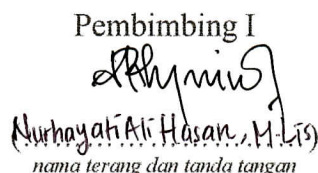 Pembimbing I
(Nurhayati Ali Hasan, M.LIS)
nama terang dan tanda tangan